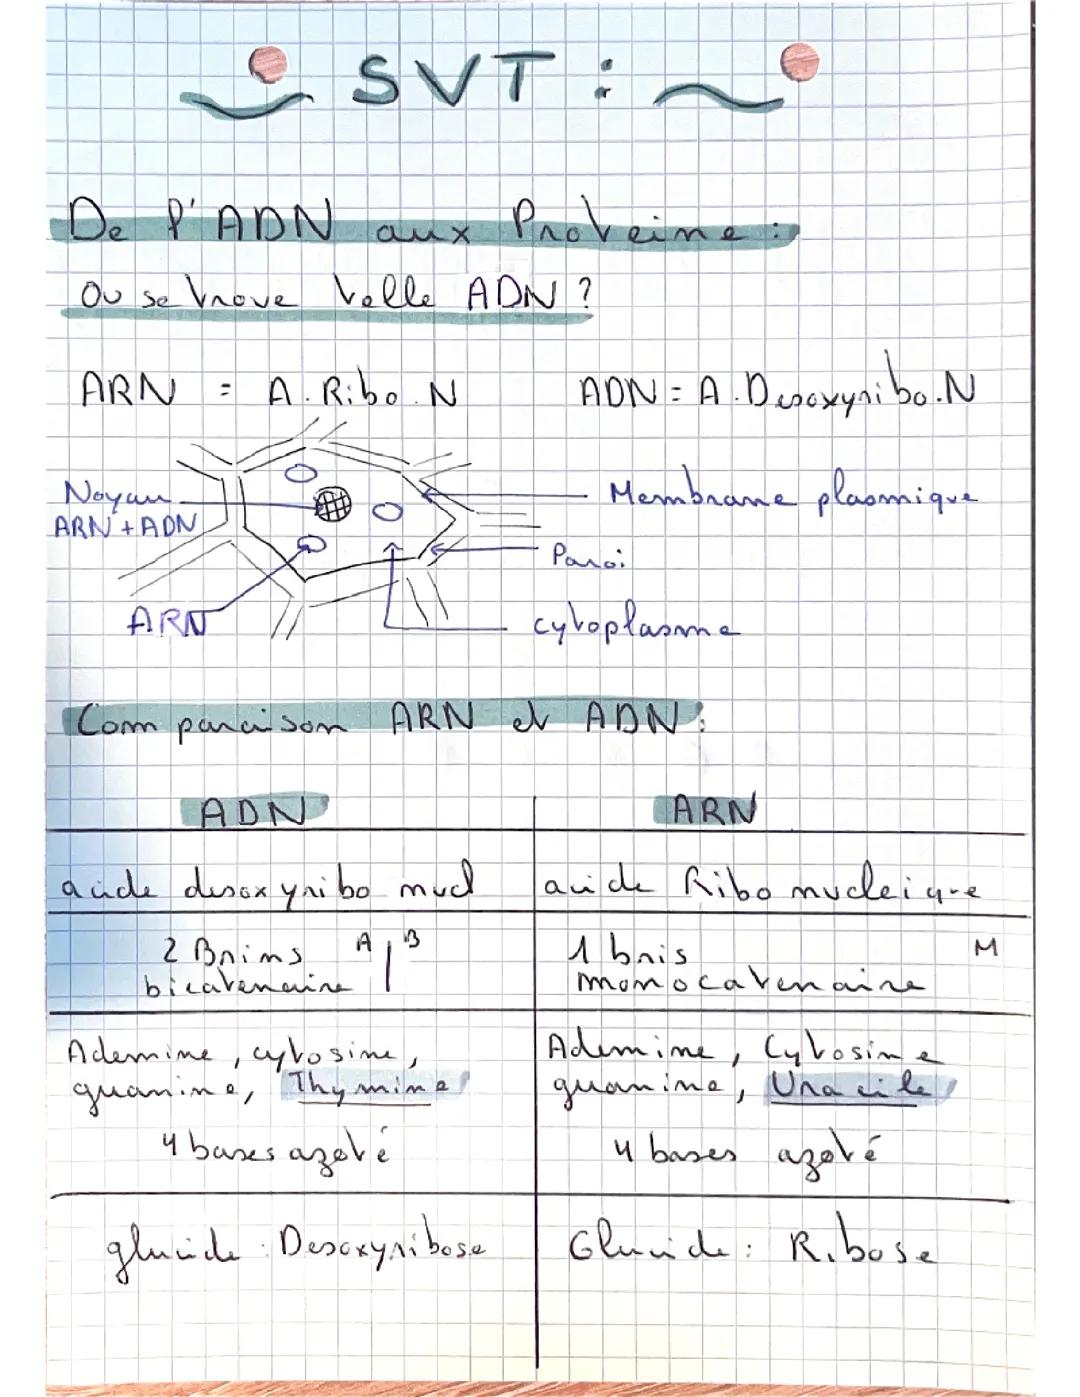 SVT :
De l'ADN aux Proteine :
Ou se trove telle ADN ?
ARN = A. Ribo. N
ADN = A. Desoxyribo. N
Noyau
ARN + ADN
Membrane plasmique
Paroi
ARN
cytoplasme
Comparaison ARN et ADN :
ADN
ARN
acide desoxyribo nucl
acide Ribo nucleique
2 Brins A | B
bicatenaire
1 bris M
monocatenaire
Ademine, cytosine,
guanine, Thymine
4 bases azoté
Ademine, Cytosine
guanine, Uracile
4 bases azoté
glucide : Desoxyribose
Glucide : Ribose